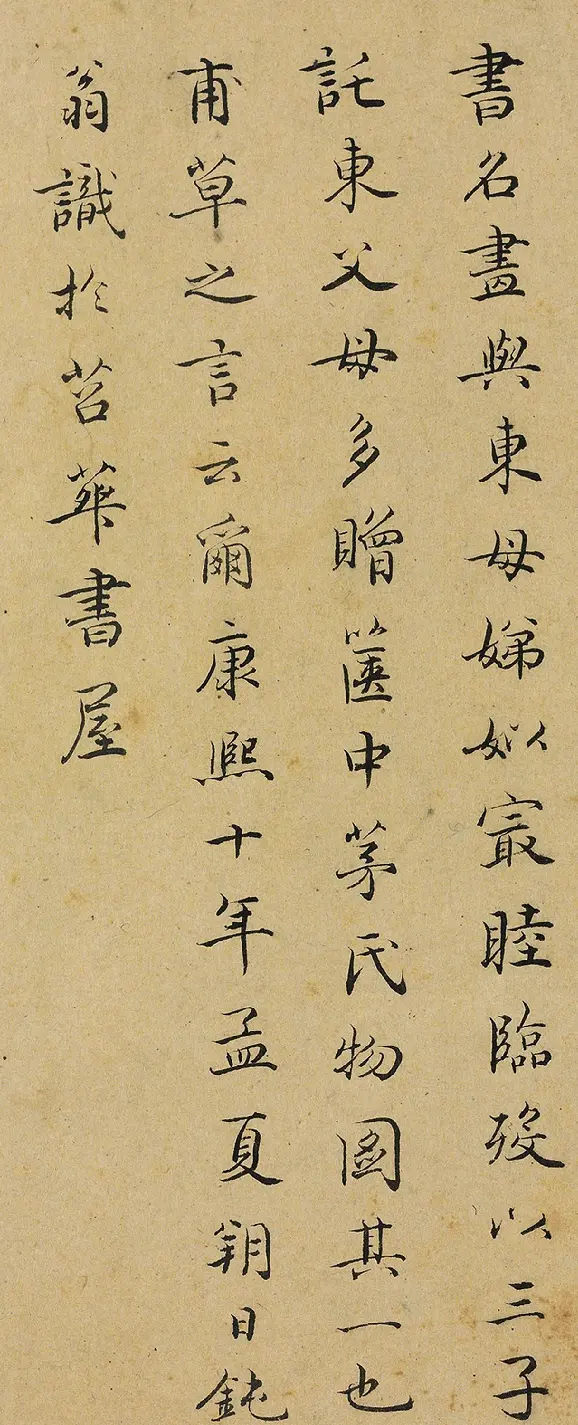 書名畫與東母娣姒㝡睦臨歿以三子
託東父母多贈篋中茅氏物圖其一也
甫草之言云爾康熙十年孟夏朔日鈍
翁識於苕華書屋